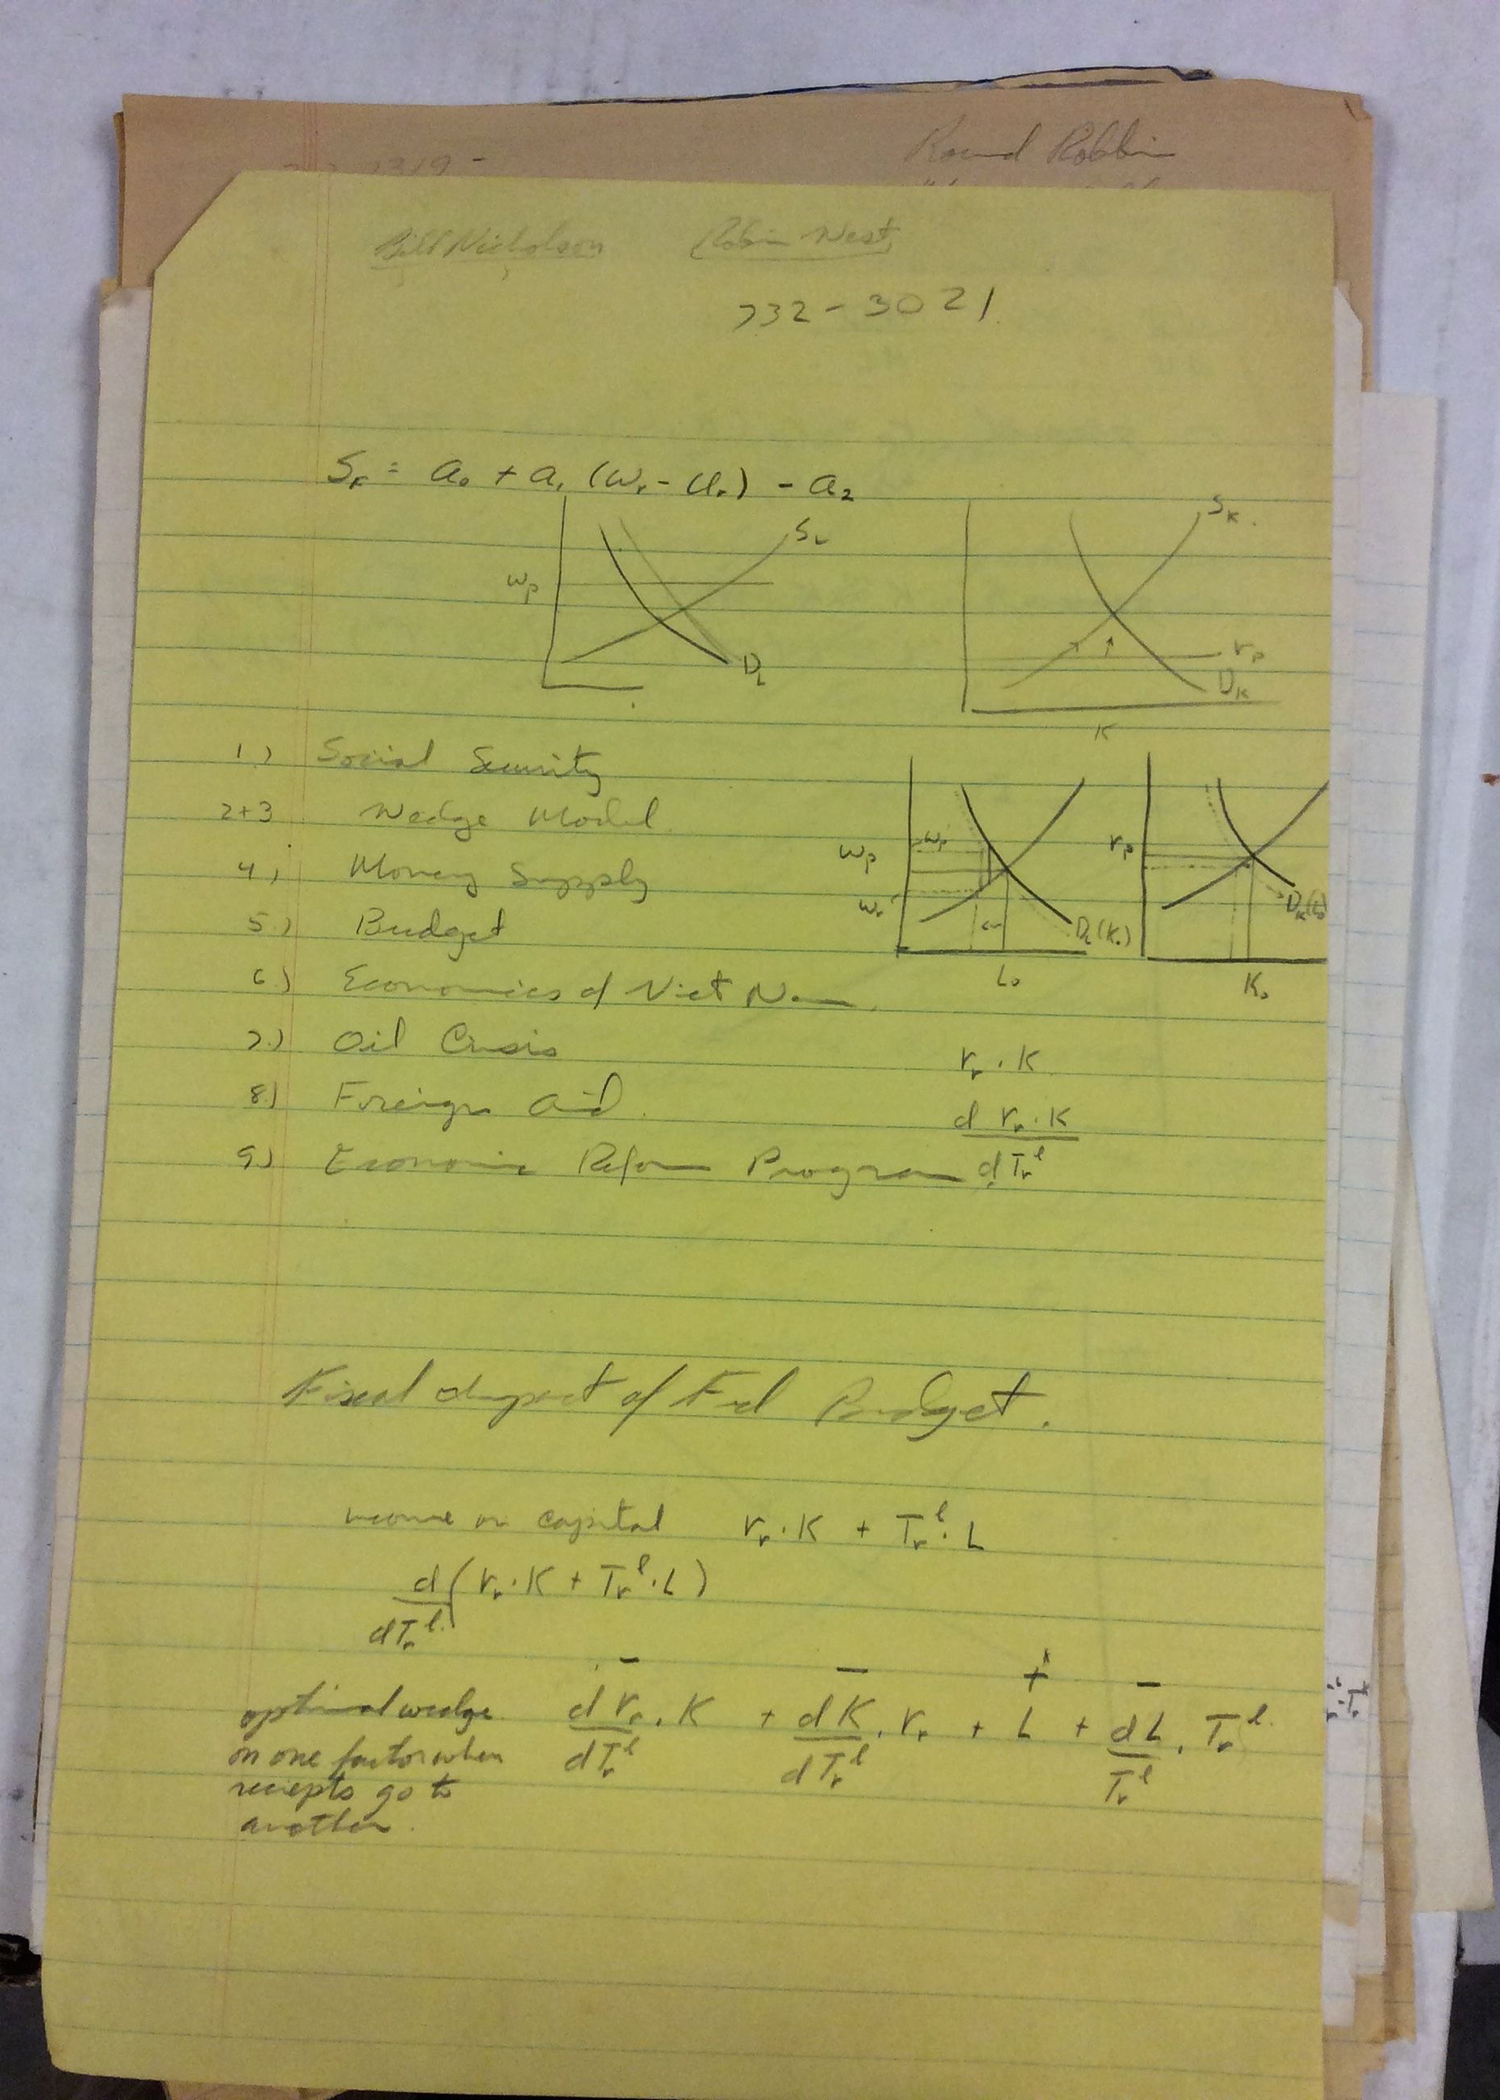 Round Robbin
Bill Nicholson Robin West
732-3021
S_r = a_0 + a_1 (w_r - U_r) - a_2
w_p S_L D_L
S_K r_p D_K K
1.) Social Security
2+3 Wedge Model
4.) Money Supply
5.) Budget
6.) Economics of Viet Nam
7.) Oil Crisis
8.) Foreign Aid
9.) Economic Reform Program
w_p w_p w_r D_L(K_0) L_0
r_p D_K(L_0) K_0
r_r · K
d r_r · K
dT_r^l
Fiscal Impact of Fed Budget.
income on capital r_r · K + T_r^l · L
d (r_r · K + T_r^l · L)
dT_r^l
- - + -
optimal wedge
on one factor when
reciepts go to
another.
d r_r · K + dK · r_r + L + dL · T_r^l
dT_r^l dT_r^l T_r^l